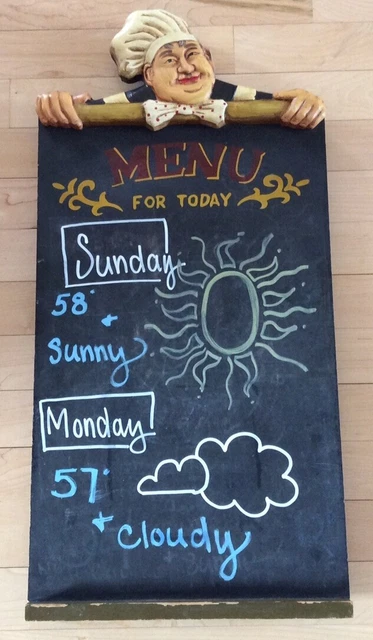 MENU
FOR TODAY
Sunday
58° +
Sunny
Monday
57°
+ cloudy